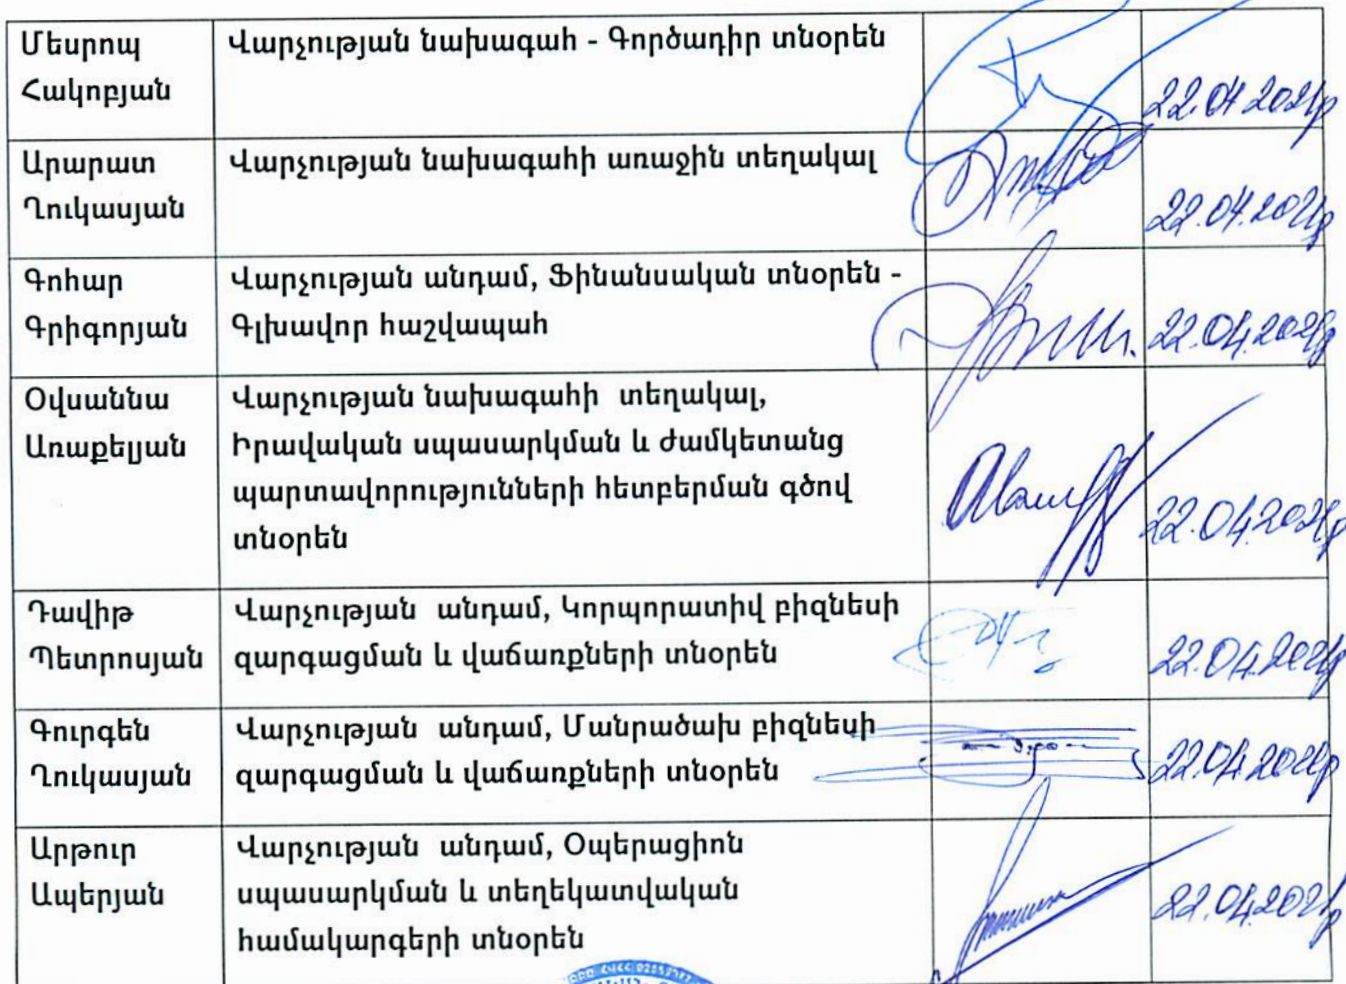 Մեսրոպ Հակոբյան
Վարչության նախագահ - Գործադիր տնօրեն
22.04.2021թ
Արարատ Ղուկասյան
Վարչության նախագահի առաջին տեղակալ
22.04.2021թ
Գոհար Գրիգորյան
Վարչության անդամ, Ֆինանսական տնօրեն -
Գլխավոր հաշվապահ
22.04.2021թ
Օվսաննա Առաքելյան
Վարչության նախագահի տեղակալ,
Իրավական սպասարկման և ժամկետանց
պարտավորությունների հետբերման գծով
տնօրեն
22.04.2021թ
Դավիթ Պետրոսյան
Վարչության անդամ, Կորպորատիվ բիզնեսի
զարգացման և վաճառքների տնօրեն
22.04.2021թ
Գուրգեն Ղուկասյան
Վարչության անդամ, Մանրածախ բիզնեսի
զարգացման և վաճառքների տնօրեն
22.04.2021թ
Արթուր Ապերյան
Վարչության անդամ, Օպերացիոն
սպասարկման և տեղեկատվական
համակարգերի տնօրեն
22.04.2021թ